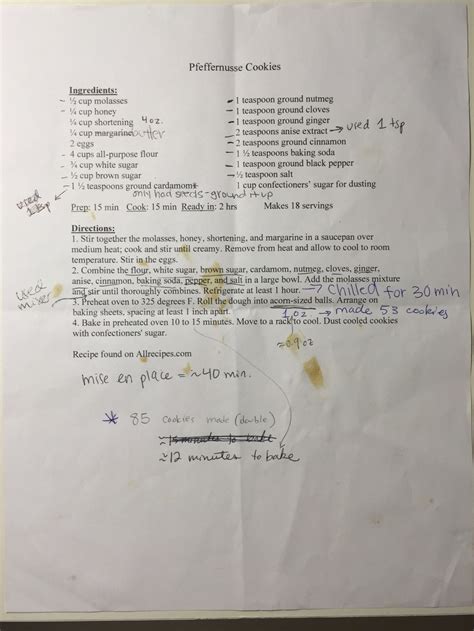 Pfeffernusse Cookies
Ingredients:
- ½ cup molasses
- ¼ cup honey
¼ cup shortening 4oz.
¼ cup margarine butter
2 eggs
- 4 cups all-purpose flour
- ¾ cup white sugar
- ½ cup brown sugar
- 1 ½ teaspoons ground cardamom
used 1 tsp
only had seeds - ground it up
- 1 teaspoon ground nutmeg
- 1 teaspoon ground cloves
- 1 teaspoon ground ginger
- 2 teaspoons anise extract → used 1 tsp
- 2 teaspoons ground cinnamon
- 1 ½ teaspoons baking soda
- 1 teaspoon ground black pepper
- ½ teaspoon salt
1 cup confectioners' sugar for dusting
Prep: 15 min Cook: 15 min Ready in: 2 hrs Makes 18 servings
Directions:
1. Stir together the molasses, honey, shortening, and margarine in a saucepan over
medium heat; cook and stir until creamy. Remove from heat and allow to cool to room
temperature. Stir in the eggs.
2. Combine the flour, white sugar, brown sugar, cardamom, nutmeg, cloves, ginger,
anise, cinnamon, baking soda, pepper, and salt in a large bowl. Add the molasses mixture
and stir until thoroughly combines. Refrigerate at least 1 hour. → Chilled for 30 min
used mixer
3. Preheat oven to 325 degrees F. Roll the dough into acorn-sized balls. Arrange on
baking sheets, spacing at least 1 inch apart. 1 oz → made 53 cookies
4. Bake in preheated oven 10 to 15 minutes. Move to a rack to cool. Dust cooled cookies
with confectioners' sugar.
Recipe found on Allrecipes.com
mise en place = ~40 min.
* 85 cookies made (double)
≈ 15 minutes to bake
≈ 12 minutes to bake